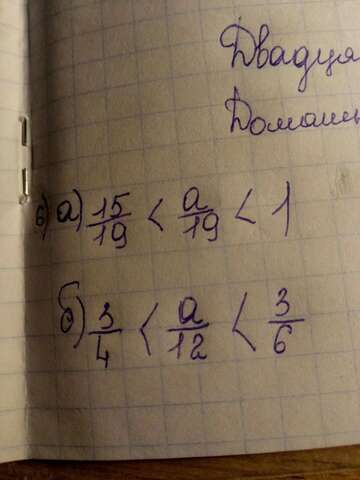 Двадца
Домашн
6) а) 15/19 < a/19 < 1
б) 3/4 < a/12 < 3/6